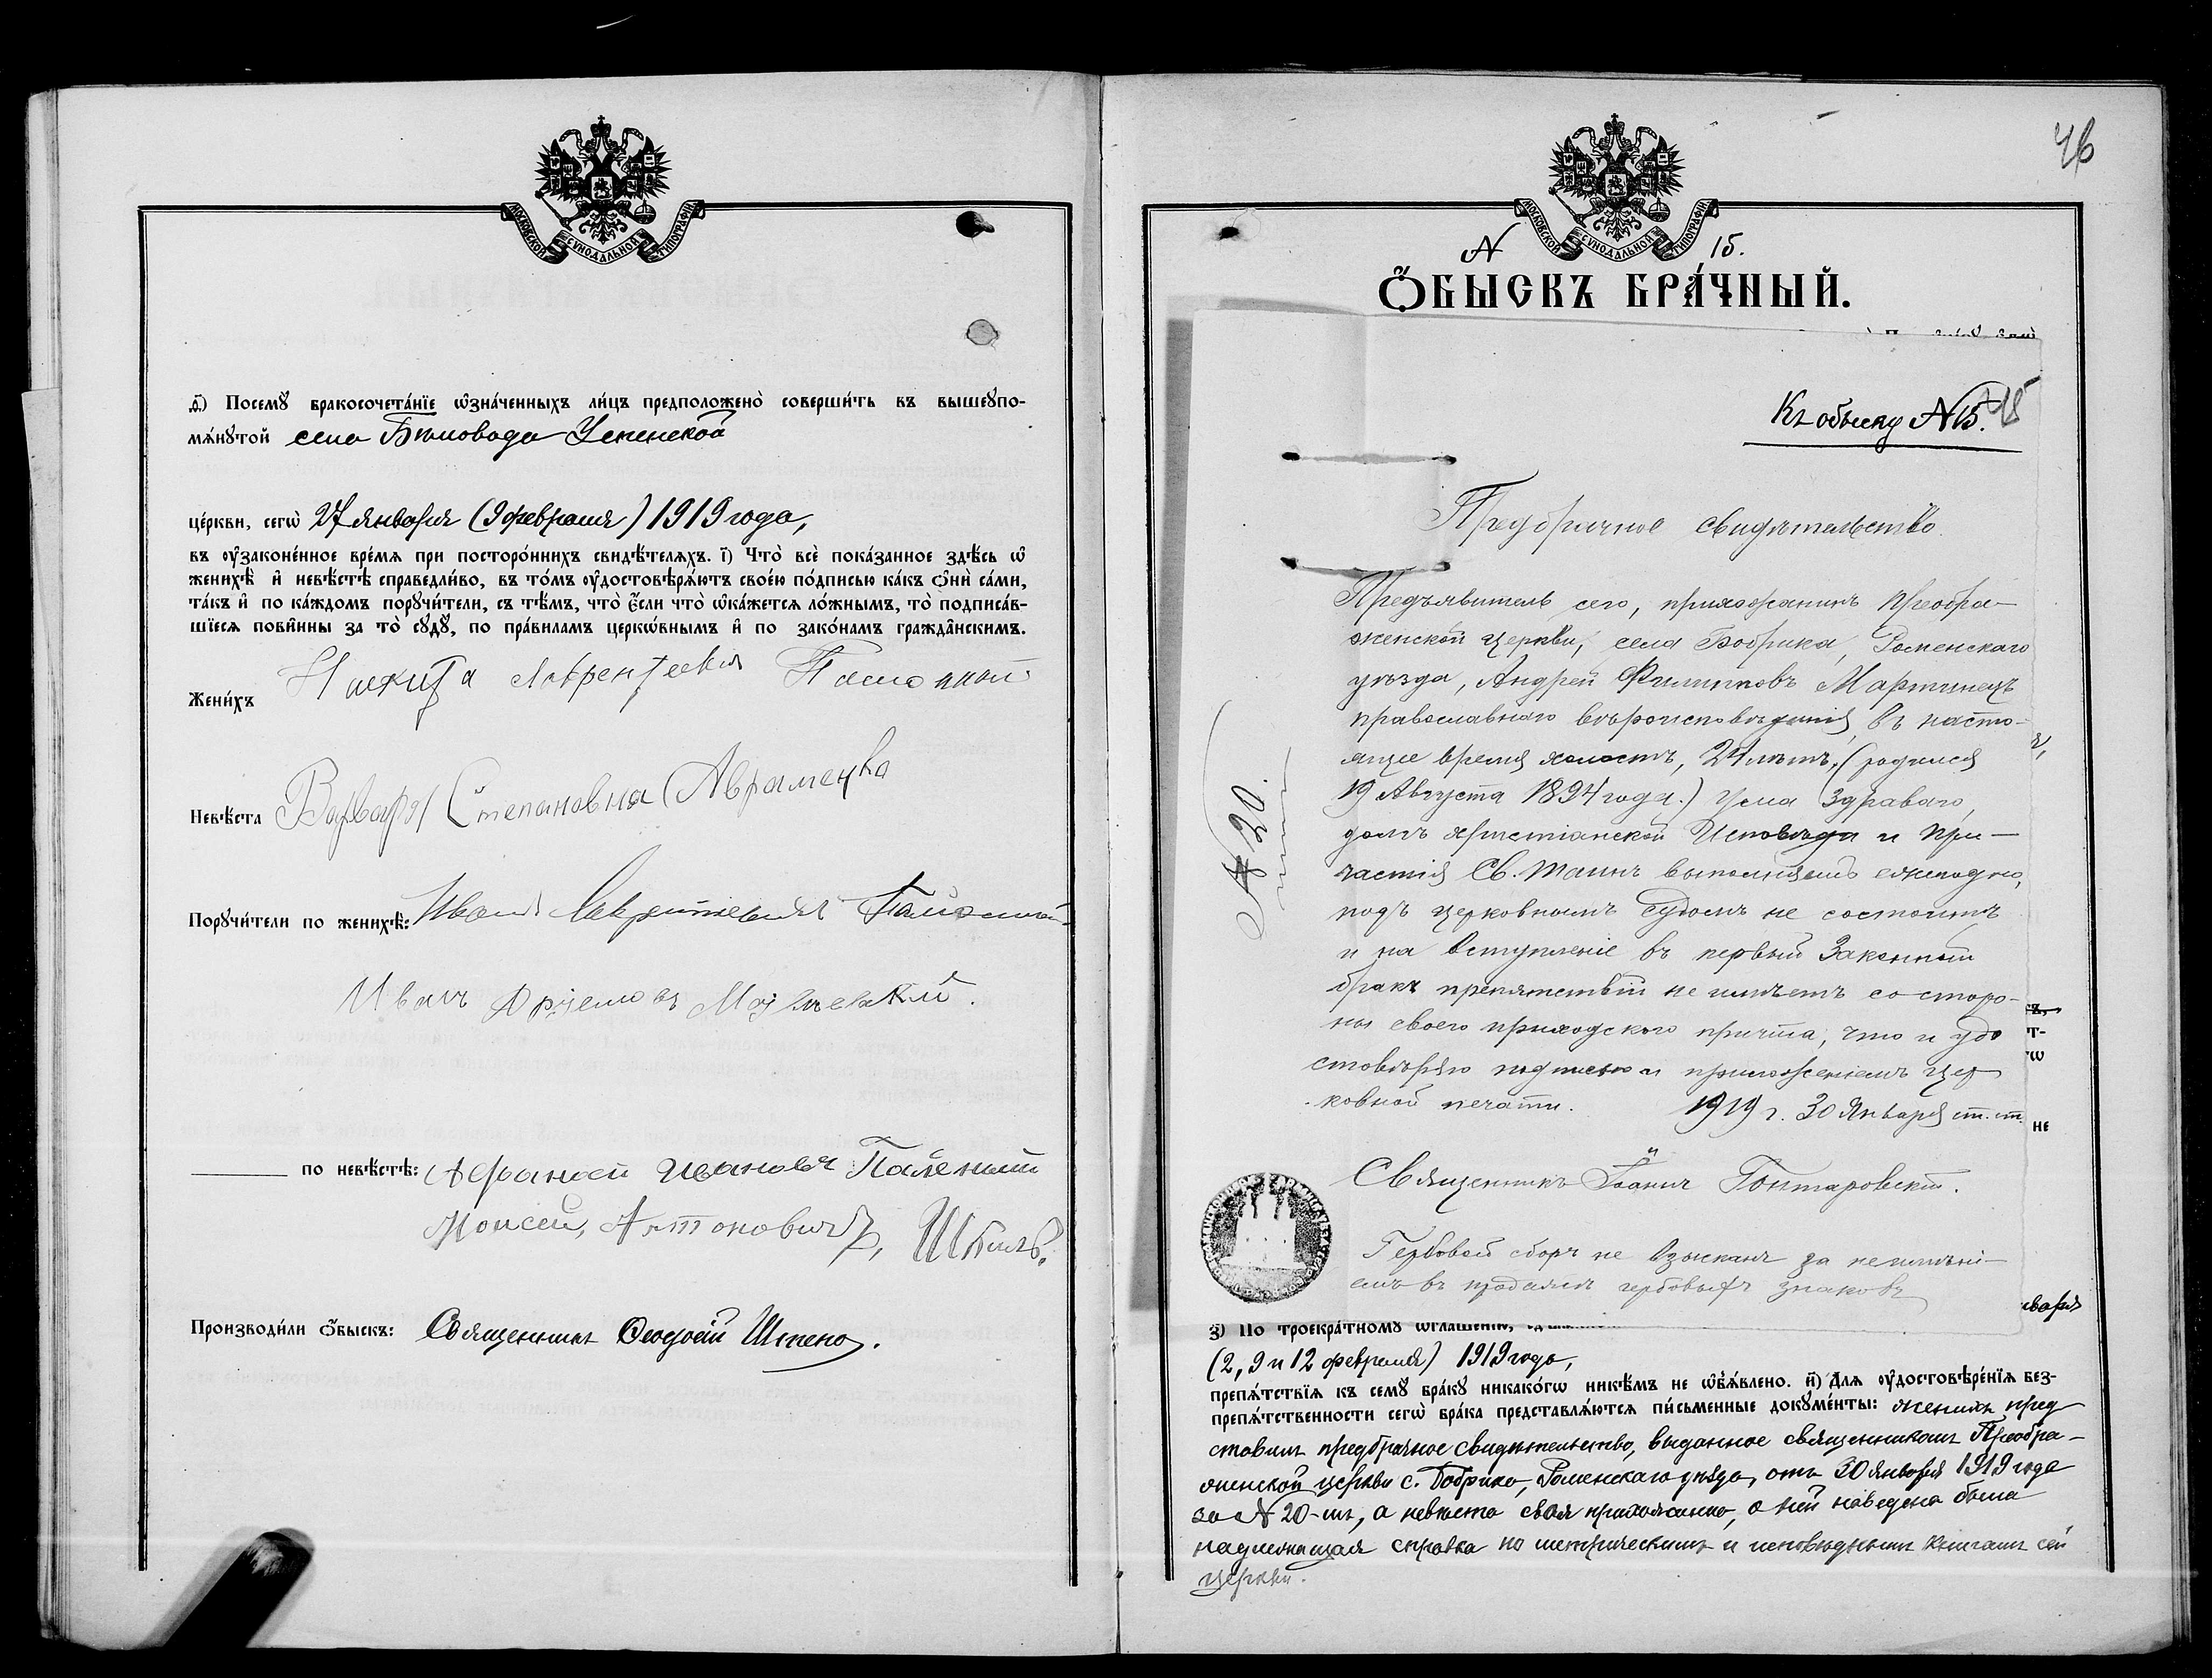 МОСКОВСКОЙ СѴНОДАЛЬНОЙ ТИПОГРАФІИ
д҃) Посемꙋ̀ бракосочета́нїе ѡ҆зна́ченныхъ ли́цъ предположено̀ соверши́ть въ вышеꙋпо-
мѧ́нꙋтой села Бѣловода Успенской
це́ркви, сегѡ̀ 27 января (9 февраля) 1919 года,
въ ᲂу҆законе́нное вре́мѧ при посторо́ннихъ свидѣ́телѧхъ. і҃) Что̀ всѐ пока́занное здѣ́сь ѡ҆
женихѣ̀ и҆ невѣ́стѣ справедли́во, въ то́мъ ᲂу҆достовѣрѧ́ютъ свое́ю по́дписью ка́къ ѻ҆нѝ са́ми,
та́къ и҆ по ка́ждомъ порꙋчи́тели, съ тѣ́мъ, что̀ є҆́сли что̀ ѡ҆ка́жетсѧ ло́жнымъ, то̀ подписа́в-
шїесѧ пови́нны за то̀ сꙋдꙋ̀, по пра́виламъ церкѡ́внымъ и҆ по зако́намъ гражда́нскимъ.
Жени́хъ
Невѣ́ста Варвара Степановна Авраменко
Порꙋчи́тели по женихѣ̀: Иванъ
Иванъ
по невѣ́стѣ: Афанасій Ивановъ Паленый
Моисей, Антоновичъ, Шкиль.
Производи́ли ѻ҆́быскъ: Священникъ Ѳеодосій
46
МОСКОВСКОЙ СѴНОДАЛЬНОЙ ТИПОГРАФІИ
N 15.
Ѻ҆́БЫСКЪ БРА́ЧНЫЙ.
Къ обыску N 15.
Предбрачное свидѣтельство.
Предъявитель сего, прихожанинъ Преобра-
женской церкви, села Бобрика, Роменскаго
уѣзда, Андрей Филипповъ Мартинецъ
православнаго вѣроисповѣданія, въ насто-
ящее время холостъ, 24 лѣтъ, (родился
19 Августа 1894 года.) Ума здраваго,
долгъ христіанской Исповѣди и При-
частія Св. Таинъ выполняетъ ежегодно,
подъ церковнымъ судомъ не состоитъ
и на вступленіе въ первый Законный
бракъ препятствій не имѣетъ со сторо-
ны своего приходского причта, что и удо
стовѣряю подписью и приложеніемъ цер
ковной печати. 1919 г. 30 Января ст. ст.
N 20.
Священникъ Іоаннъ Гонтаровскій.
Гербовой сборъ не взысканъ за неимѣні-
емъ въ продажѣ гербовыхъ знаковъ
нваря
з҃) По троекра́тномꙋ ѡ҆глаше́нїю,
(2, 9 и 12 февраля) 1919 года,
препѧ́тствїѧ къ семꙋ̀ бра́кꙋ никако́гѡ никѣ́мъ не ѡ҆б̾ѧ́влено. и҃) Длѧ ᲂу҆достовѣре́нїѧ без-
препѧ́тственности сегѡ̀ бра́ка представлѧ́ютсѧ пи́сьменные докꙋме́нты: женихъ пред-
ставилъ предбрачное свидѣтельство, выданное священникомъ Преобра-
женской церкви с. Бобрика, Роменскаго уѣзда, отъ 30 января 1919 года
за N 20-мъ, а невѣста своя прихожанка, о ней наведена была
надлежащая справка по метрическимъ и исповѣднымъ книгамъ сей
церкви.